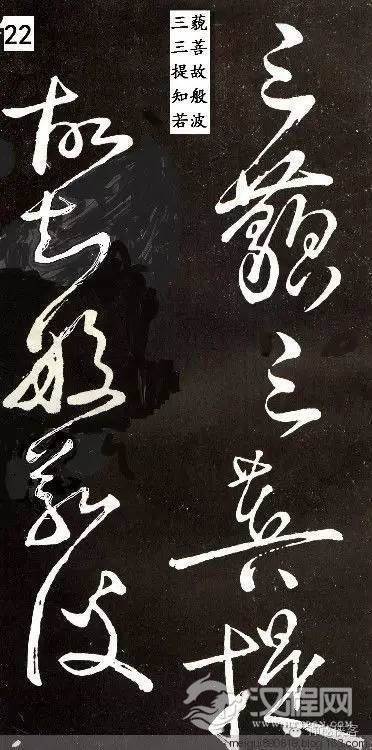 22
三藐
三菩
提故
知般
若波
三藐三菩提
故知般若波
汉程网